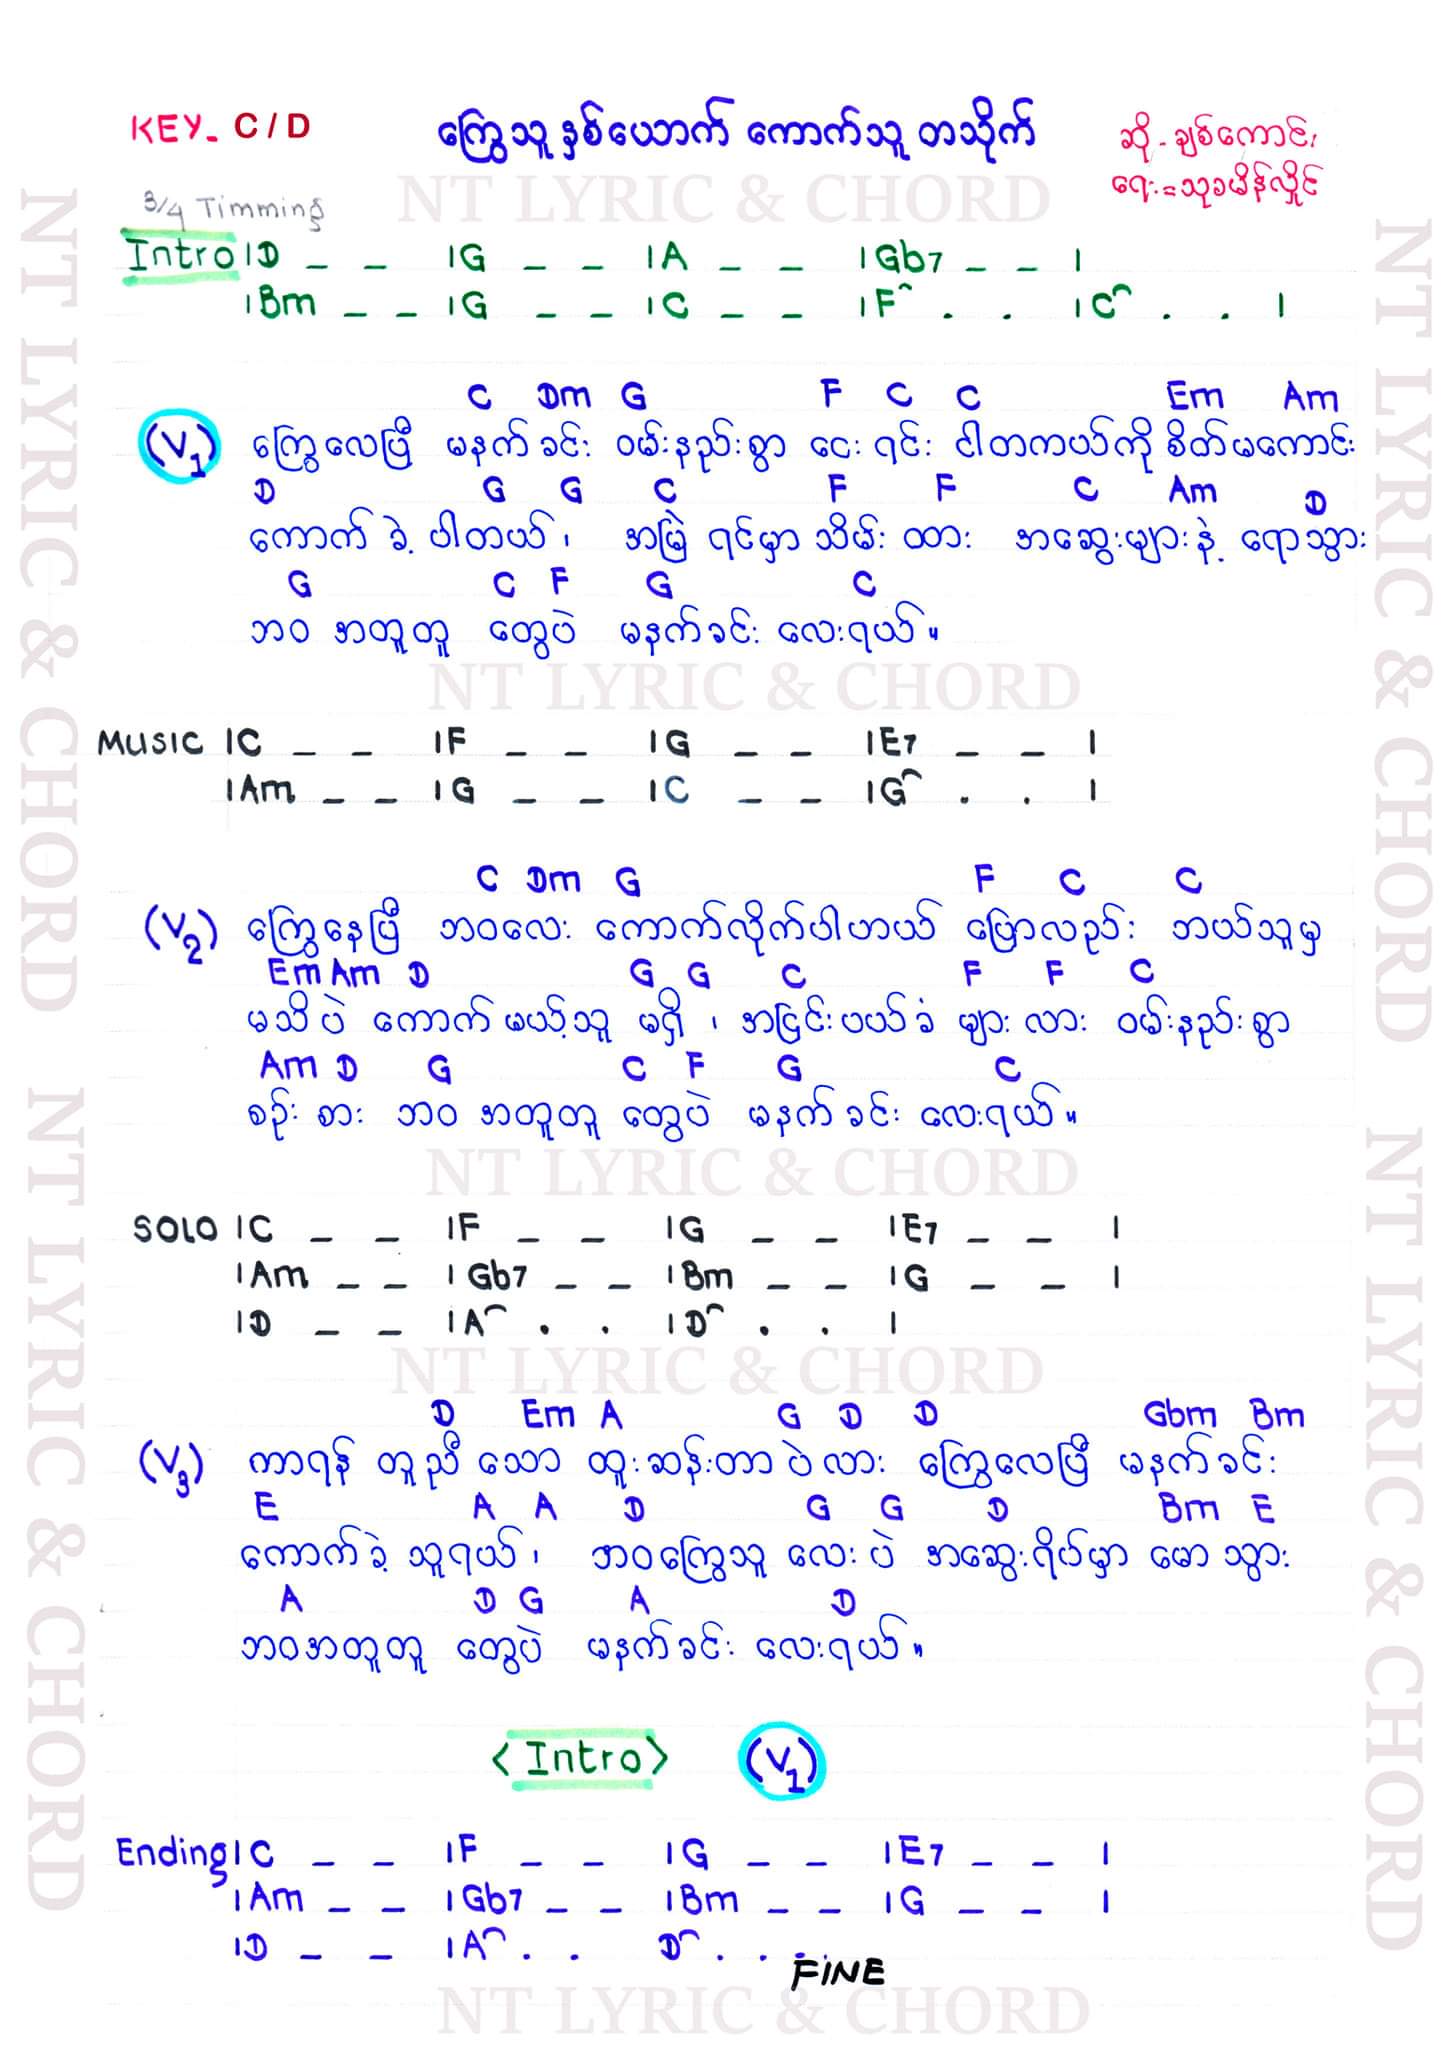 KEY- C / D
ကြွေသူ နှစ်ယောက် ကောက်သူ တသိုက်
ဆို - ချစ်ကောင်း
ရေး = သုခမိန်လှိုင်
NT LYRIC & CHORD
3/4 Timming
Intro |D _ _ |G _ _ |A _ _ |Gb7 _ _ |
|Bm _ _ |G _ _ |C _ _ |F⌒ . . |C⌒ . . |
C Dm G F C C Em Am
(V1) ကြွေလေပြီ မနက်ခင်း ဝမ်းနည်းစွာ ငေးရင်း ငါတကယ်ကို စိတ်မကောင်း
D G G C F F C Am D
ကောက်ခဲ့ ပါတယ်၊ အမြဲ ရင်မှာ သိမ်းထား အဆွေးများနဲ့ ရောသွား
G C F G C
ဘဝ အတူတူ တွေပဲ မနက်ခင်း လေးရယ်။
NT LYRIC & CHORD
MUSIC |C _ _ |F _ _ |G _ _ |E7 _ _ |
|Am _ _ |G _ _ |C _ _ |G⌒ . . |
C Dm G F C C
(V2) ကြွေနေပြီ ဘဝလေး ကောက်လိုက်ပါဟယ် ပြောလည်း ဘယ်သူမှ
Em Am D G G C F F C
မသိပဲ ကောက်မယ့်သူ မရှိ၊ အငြင်းပယ်ခံ များလား ဝမ်းနည်းစွာ
Am D G C F G C
စဉ်းစား ဘဝ အတူတူ တွေပဲ မနက်ခင်း လေးရယ်။
NT LYRIC & CHORD
SOLO |C _ _ |F _ _ |G _ _ |E7 _ _ |
|Am _ _ |Gb7 _ _ |Bm _ _ |G _ _ |
|D _ _ |A⌒ . . |D⌒ . . |
NT LYRIC & CHORD
D Em A G D D Gbm Bm
(V3) ကာရန် တူညီ သော ထူးဆန်းတာ ပဲလား ကြွေလေပြီ မနက်ခင်း
E A A D G G D Bm E
ကောက်ခဲ့ သူရယ်၊ ဘဝကြွေသူ လေးပဲ အဆွေးရိပ်မှာ မောသွား
A D G A D
ဘဝအတူတူ တွေပဲ မနက်ခင်း လေးရယ်။
<Intro> (V1)
Ending |C _ _ |F _ _ |G _ _ |E7 _ _ |
|Am _ _ |Gb7 _ _ |Bm _ _ |G _ _ |
|D _ _ |A⌒ . . D⌒ . . .
FINE
NT LYRIC & CHORD
NT LYRIC & CHORD NT LYRIC & CHORD
NT LYRIC & CHORD NT LYRIC & CHORD